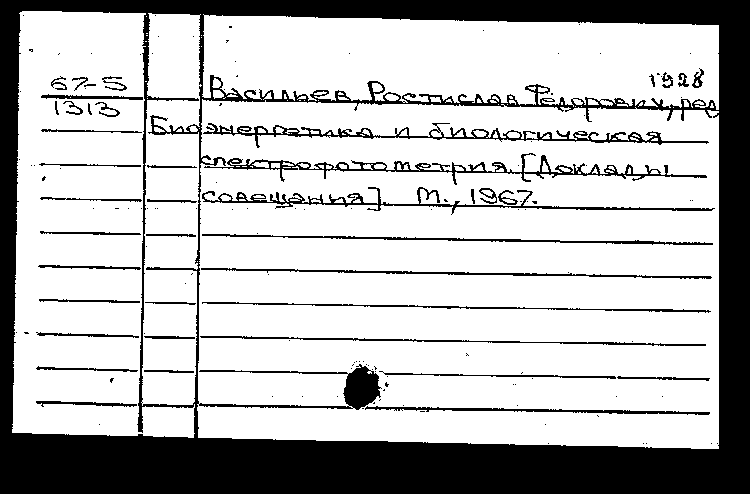 1928
67-5 Васильев, Ростислав Федорович, ред
1313
Биоэнергетика и биологическая
спектрофотометрия. [Доклады
совещания]. М., 1967.